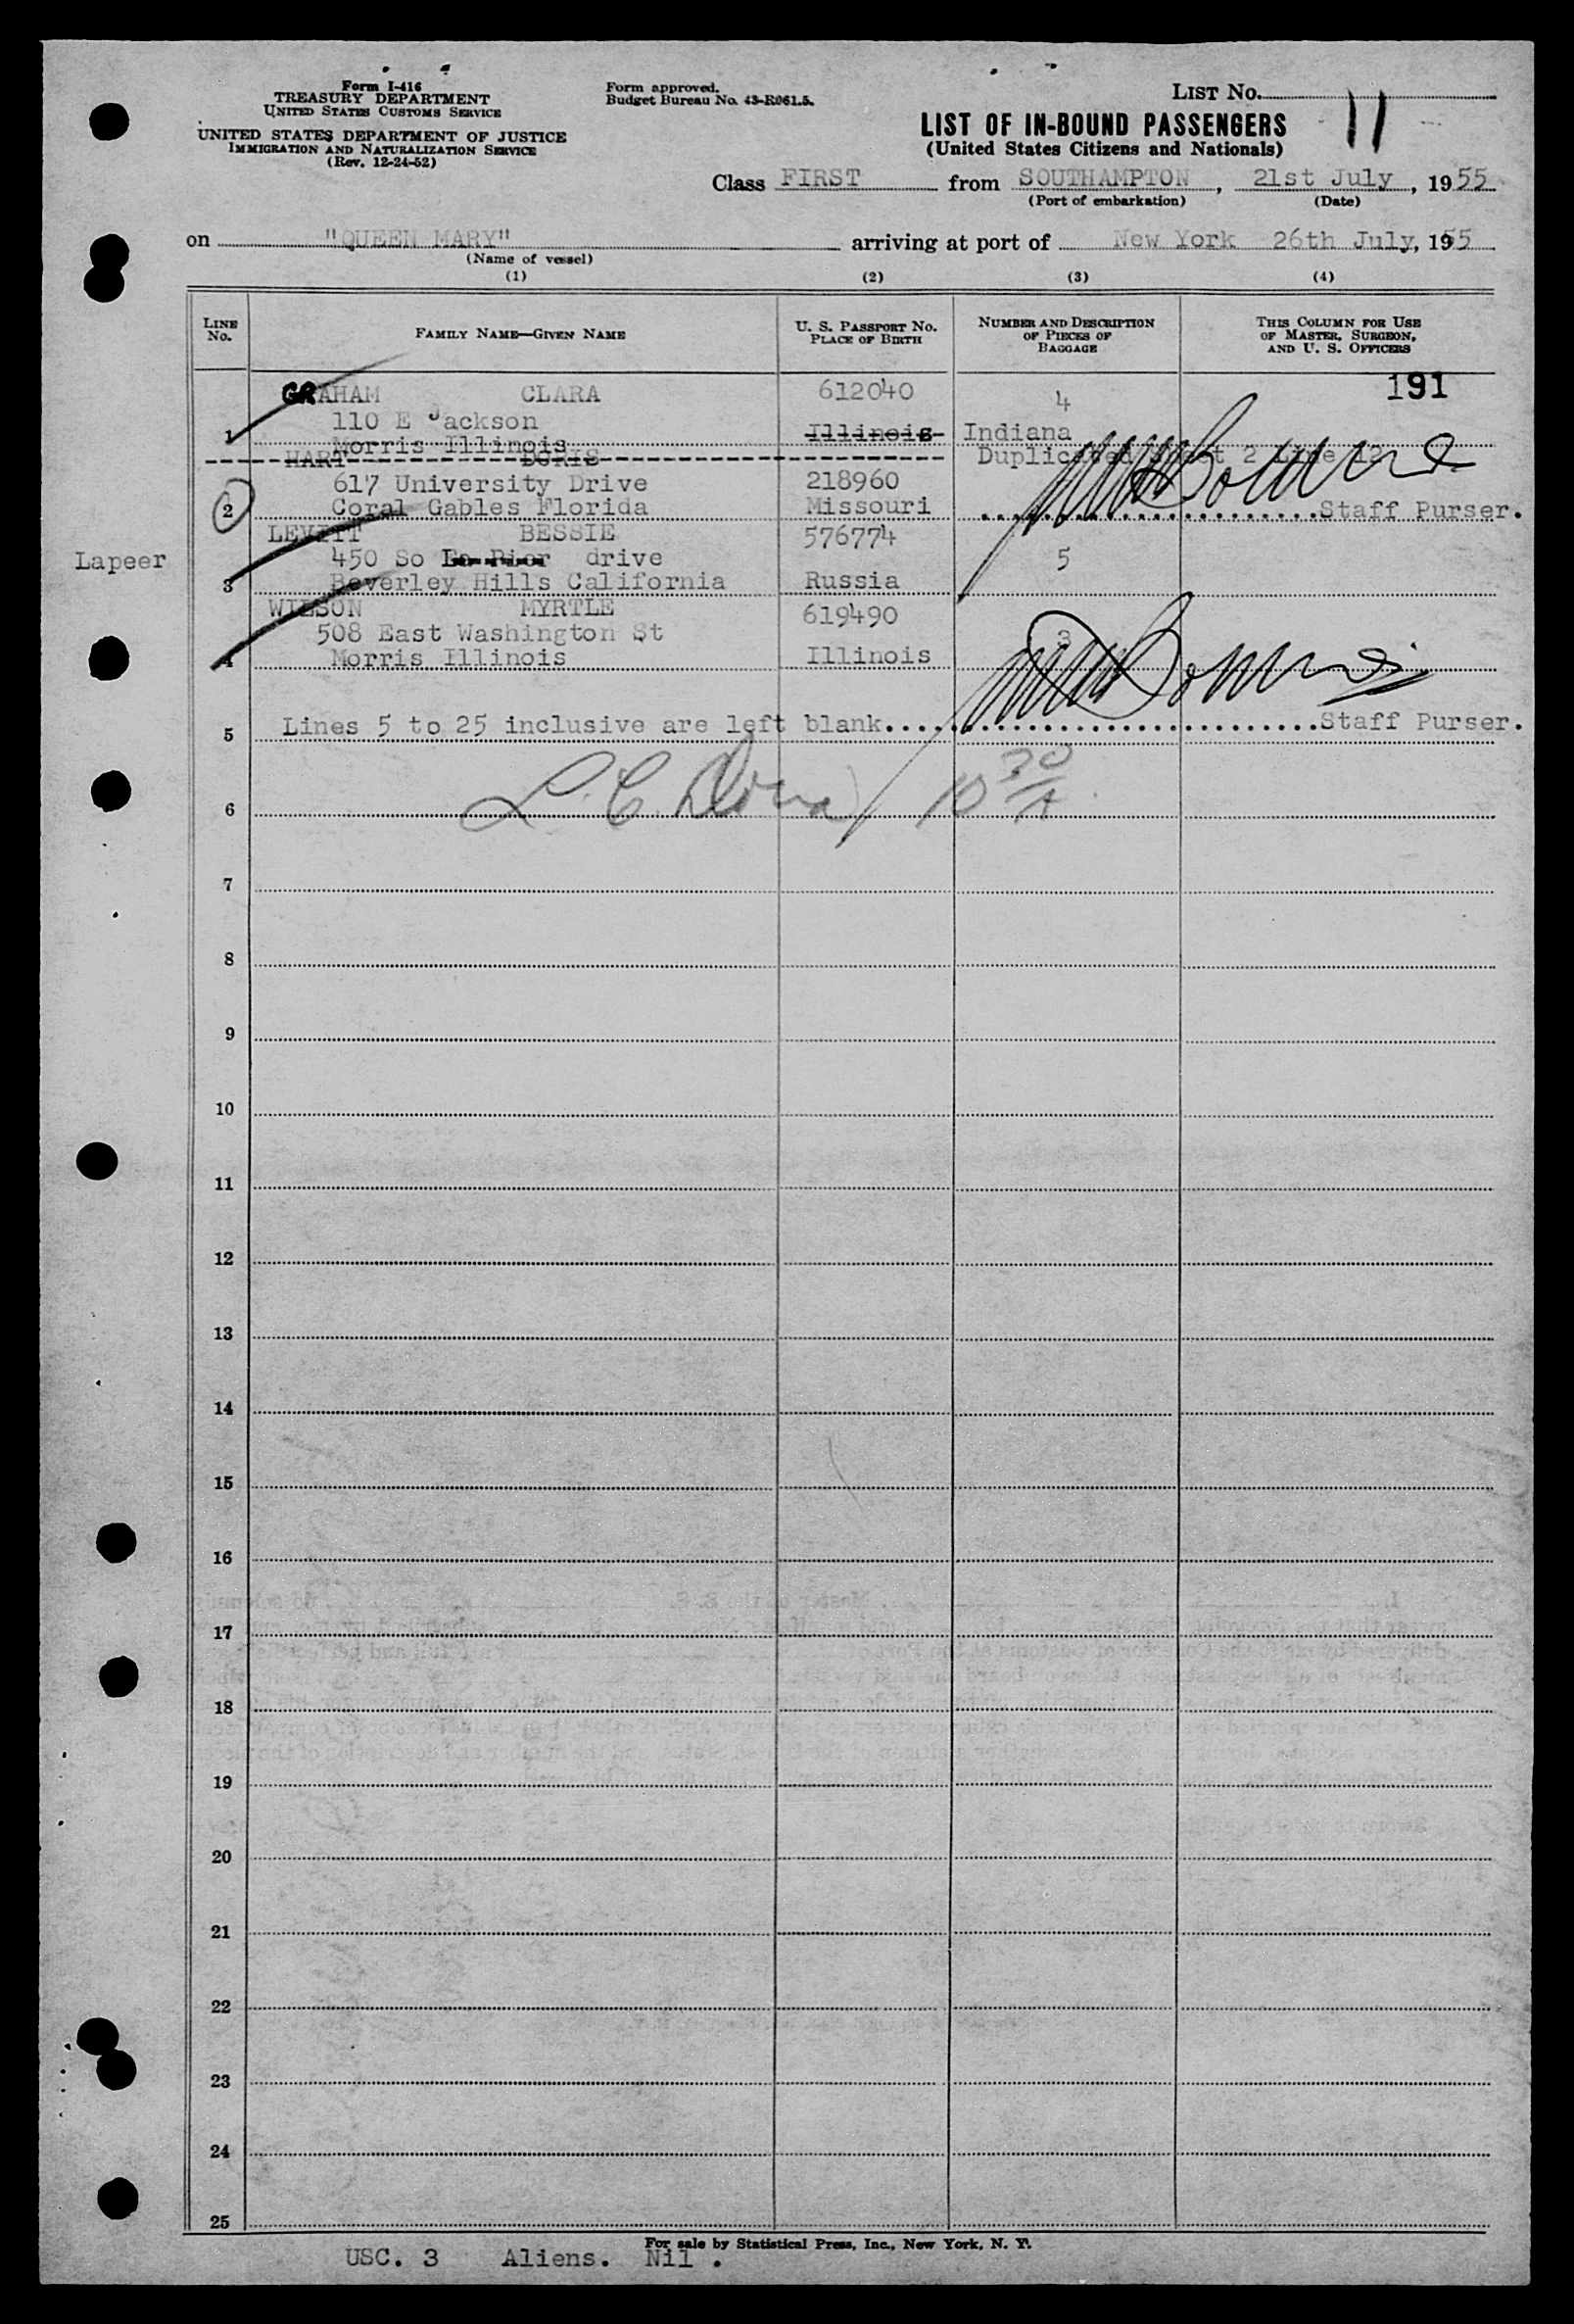 Form I-416
TREASURY DEPARTMENT
UNITED STATES CUSTOMS SERVICE
UNITED STATES DEPARTMENT OF JUSTICE
IMMIGRATION AND NATURALIZATION SERVICE
(Rev. 12-24-52)
Form approved.
Budget Bureau No. 43-R061.5.
LIST No. 11
LIST OF IN-BOUND PASSENGERS
(United States Citizens and Nationals)
Class FIRST from SOUTHAMPTON, 21st July, 1955
(Port of embarkation) (Date)
on "QUEEN MARY" arriving at port of New York 26th July, 1955
(Name of vessel)
(1) (2) (3) (4)
LINE No. FAMILY NAME—GIVEN NAME U. S. PASSPORT No. PLACE OF BIRTH NUMBER AND DESCRIPTION OF PIECES OF BAGGAGE THIS COLUMN FOR USE OF MASTER, SURGEON, AND U. S. OFFICERS
191
GRAHAM CLARA 612040 4
110 E Jackson
1 Morris Illinois Illinois Indiana
HART DORIS Duplicated Sheet 2 Line 12
617 University Drive 218960
2 Coral Gables Florida Missouri Staff Purser.
LEVITT BESSIE 576774
Lapeer 450 So drive 5
3 Beverley Hills California Russia
WILSON MYRTLE 619490
508 East Washington St 3
4 Morris Illinois Illinois
5 Lines 5 to 25 inclusive are left blank. Staff Purser.
6 L. C. 10 30/A
7
8
9
10
11
12
13
14
15
16
17
18
19
20
21
22
23
24
25
For sale by Statistical Press, Inc., New York, N. Y.
USC. 3 Aliens. Nil .